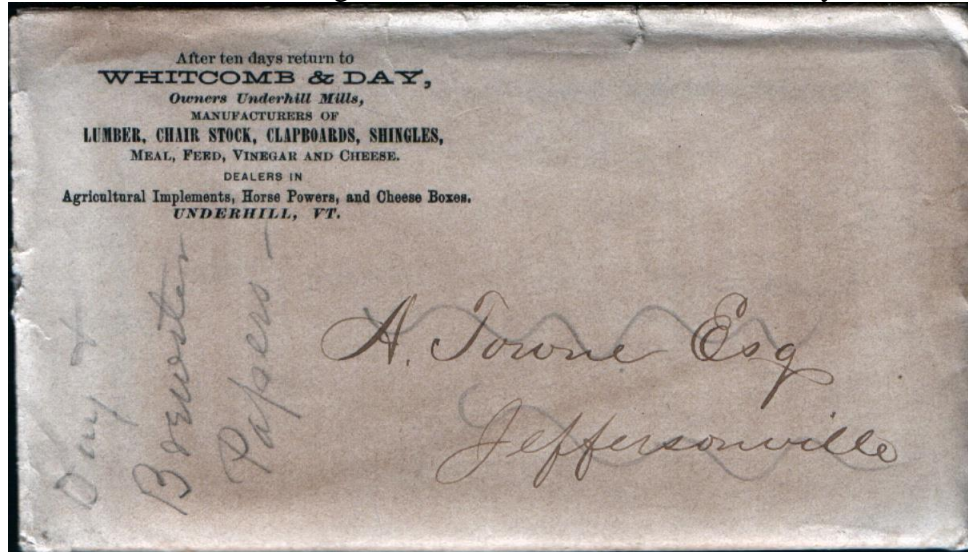 After ten days return to
WHITCOMB & DAY,
Owners Underhill Mills,
MANUFACTURERS OF
LUMBER, CHAIR STOCK, CLAPBOARDS, SHINGLES,
MEAL, FEED, VINEGAR AND CHEESE.
DEALERS IN
Agricultural Implements, Horse Powers, and Cheese Boxes.
UNDERHILL, VT.
A. Towne Esq
Jeffersonville
Day &
Brewster
Papers —